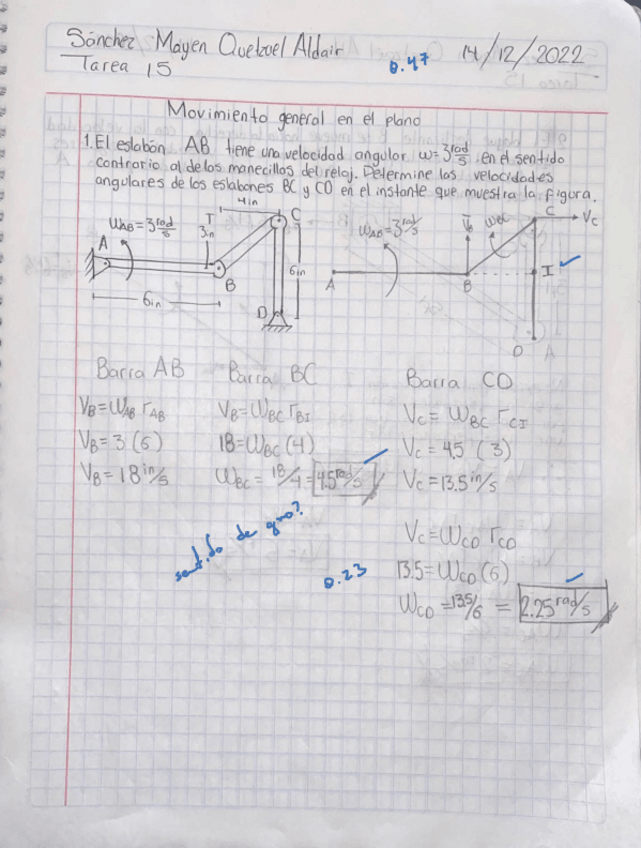 Sánchez Mayen Quetzel Aldair 14/12/2022
Tarea 15
0.47
Movimiento general en el plano
1. El eslabón AB tiene una velocidad angular ω=3 rad/s en el sentido
contrario al de las manecillas del reloj. Determine las velocidades
angulares de los eslabones BC y CD en el instante que muestra la figura.
4in
ωAB = 3 rad/s
3in
C
A
B
6in
6in
D
ωAB = 3 rad/s
C Vc
A
B
I
D
Barra AB
VB = ωAB rAB
VB = 3 (6)
VB = 18 in/s
Barra BC
VB = ωBC rBI
18 = ωBC (4)
ωBC = 18/4 = 4.5 rad/s
Barra CD
Vc = ωBC rCI
Vc = 4.5 (3)
Vc = 13.5 in/s
Vc = ωCD rCD
13.5 = ωCD (6)
ωCD = 13.5/6 = 2.25 rad/s
sentido de giro?
0.23